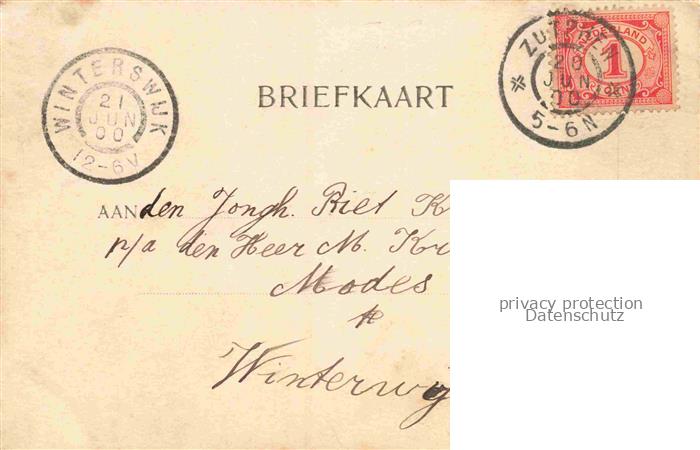 WINTERSWIJK
21
JUN
00
12-6V
BRIEFKAART
ZUTPHEN
20
JUN
00
5-6N
NEDERLAND
1
CENT
AAN den Jongh. Piet K
p/a den Heer M. Kr
Modes
te
Winterwij
privacy protection
Datenschutz